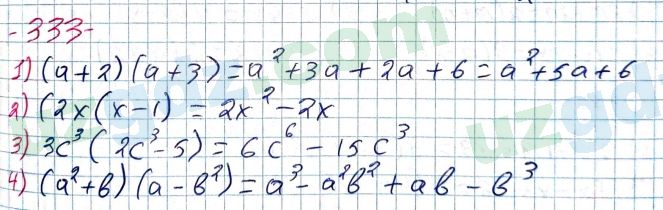 -333-
1) (a+2)(a+3)=a²+3a+2a+6=a²+5a+6
2) (2x(x-1) = 2x²-2x
3) 3c³(2c³-5)=6c⁶-15c³
4) (a²+b)(a-b²)=a³-a²b²+ab-b³